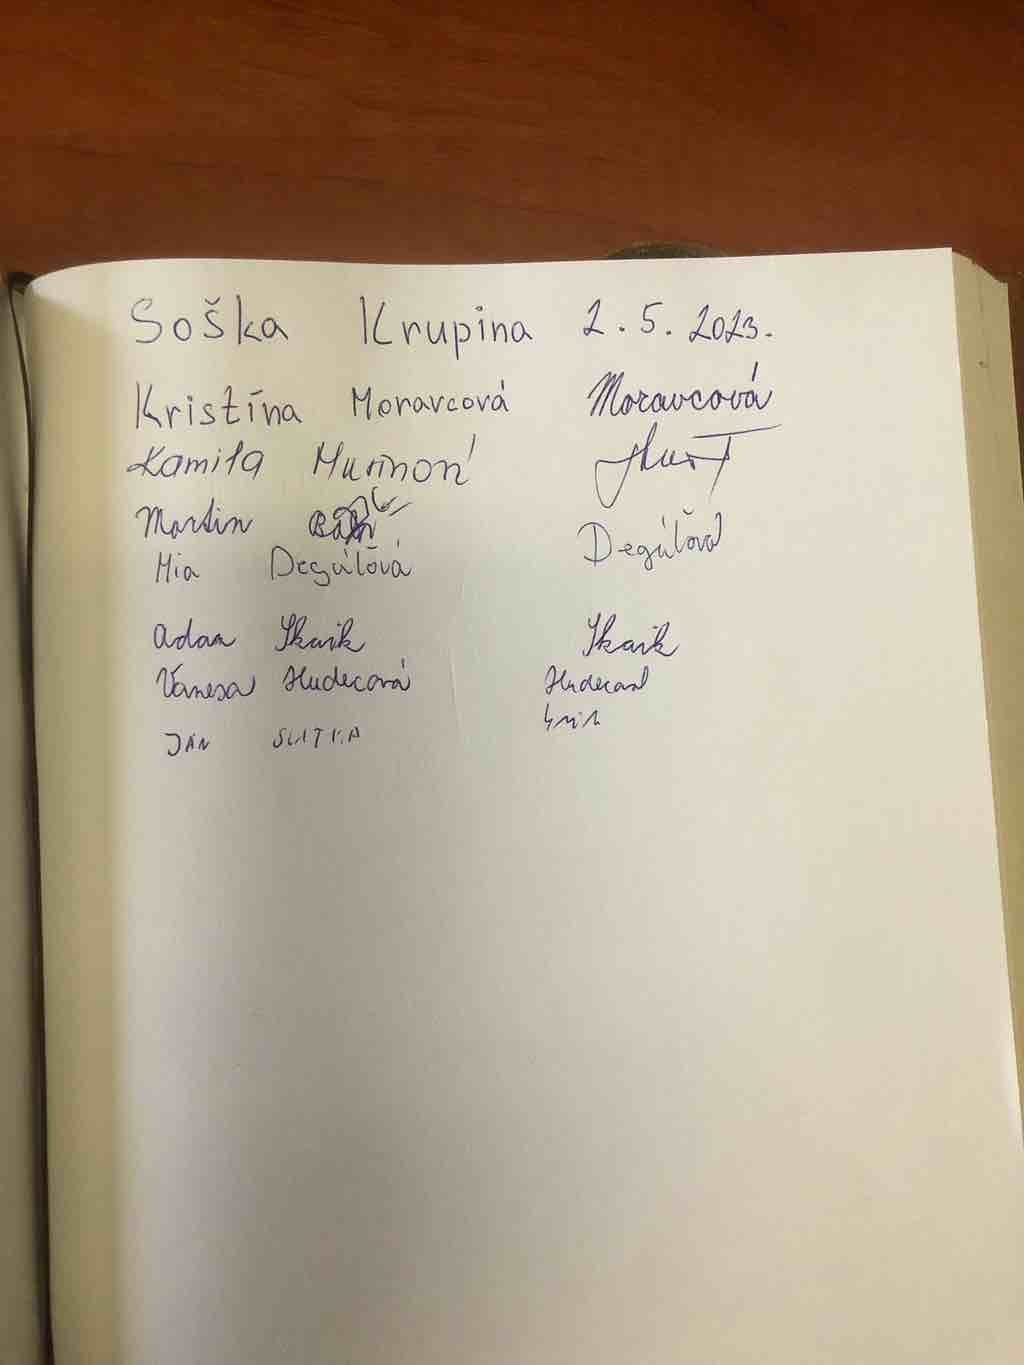 Soška Krupina 2.5.2023.
Kristína Moravcová Moravcová
Kamila
Martin
Mia Degúľová Degúľová
Adam Skaik Skaik
Vanesa Hudecová Hudecová
JÁN